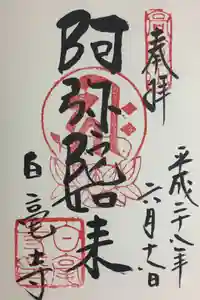 奉拝
平成二十八年
六月十八日
阿弥陀如来
白毫寺